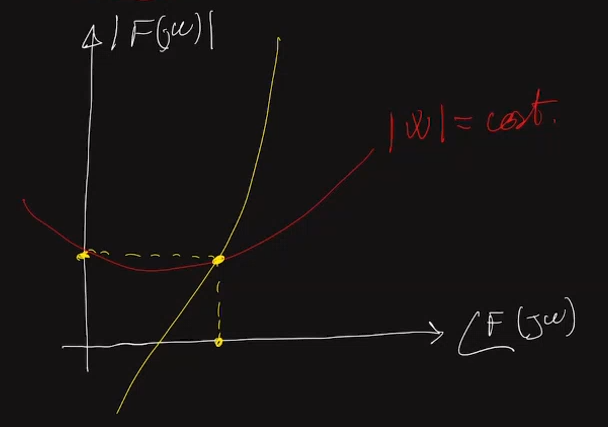 |F(jω)|
|W| = cost.
∠F(jω)